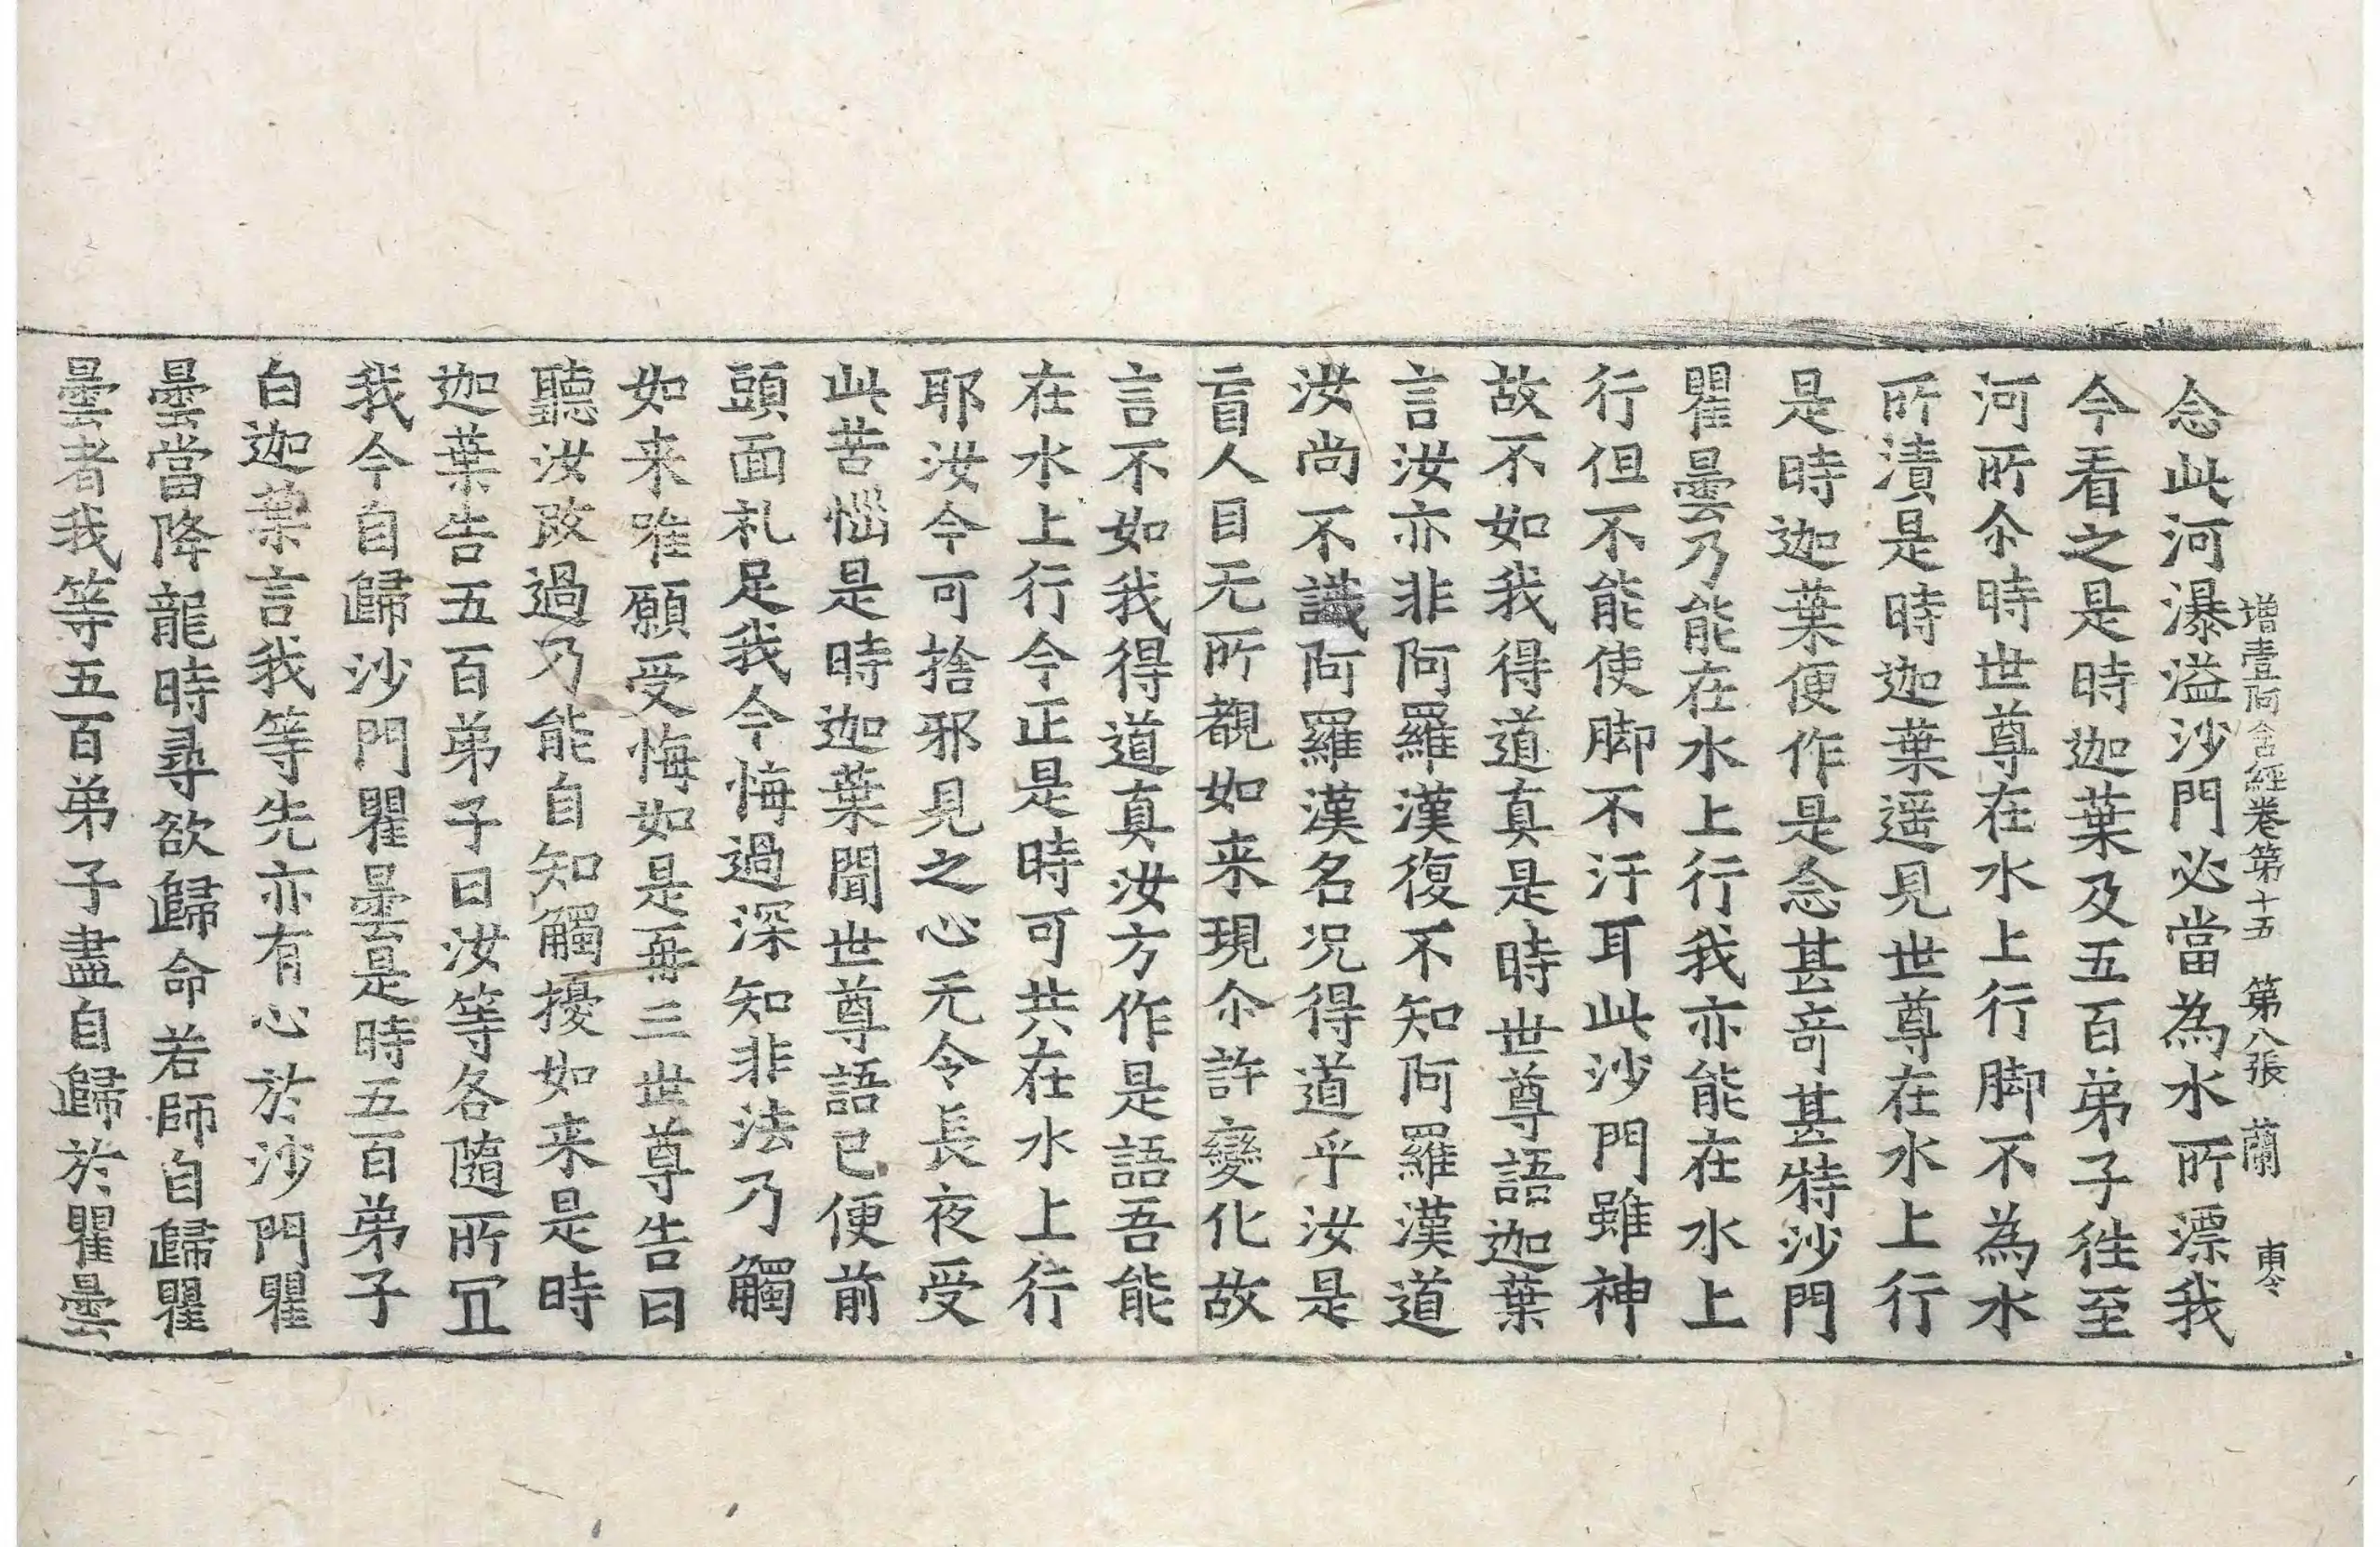 增壹阿含經卷第十五　第八張　蘭
念此河瀑溢沙門必當為水所漂我
今看之是時迦葉及五百弟子往至
河所尒時世尊在水上行脚不為水
所漬是時迦葉遥見世尊在水上行
是時迦葉便作是念甚奇甚特沙門
瞿曇乃能在水上行我亦能在水上
行但不能使脚不汙耳此沙門雖神
故不如我得道真是時世尊語迦葉
言汝亦非阿羅漢復不知阿羅漢道
汝尚不識阿羅漢名况得道乎汝是
盲人目无所覩如来現尒許變化故
言不如我得道真汝方作是語吾能
在水上行今正是時可共在水上行
耶汝今可捨邪見之心无令長夜受
此苦惱是時迦葉聞世尊語已便前
頭面礼足我今悔過深知非法乃觸
如来唯願受悔如是再三世尊告曰
聽汝改過乃能自知觸擾如来是時
迦葉告五百弟子曰汝等各隨所冝
我今自歸沙門瞿曇是時五百弟子
白迦葉言我等先亦有心於沙門瞿
曇當降龍時尋欲歸命若師自歸瞿
曇者我等五百弟子盡自歸於瞿曇